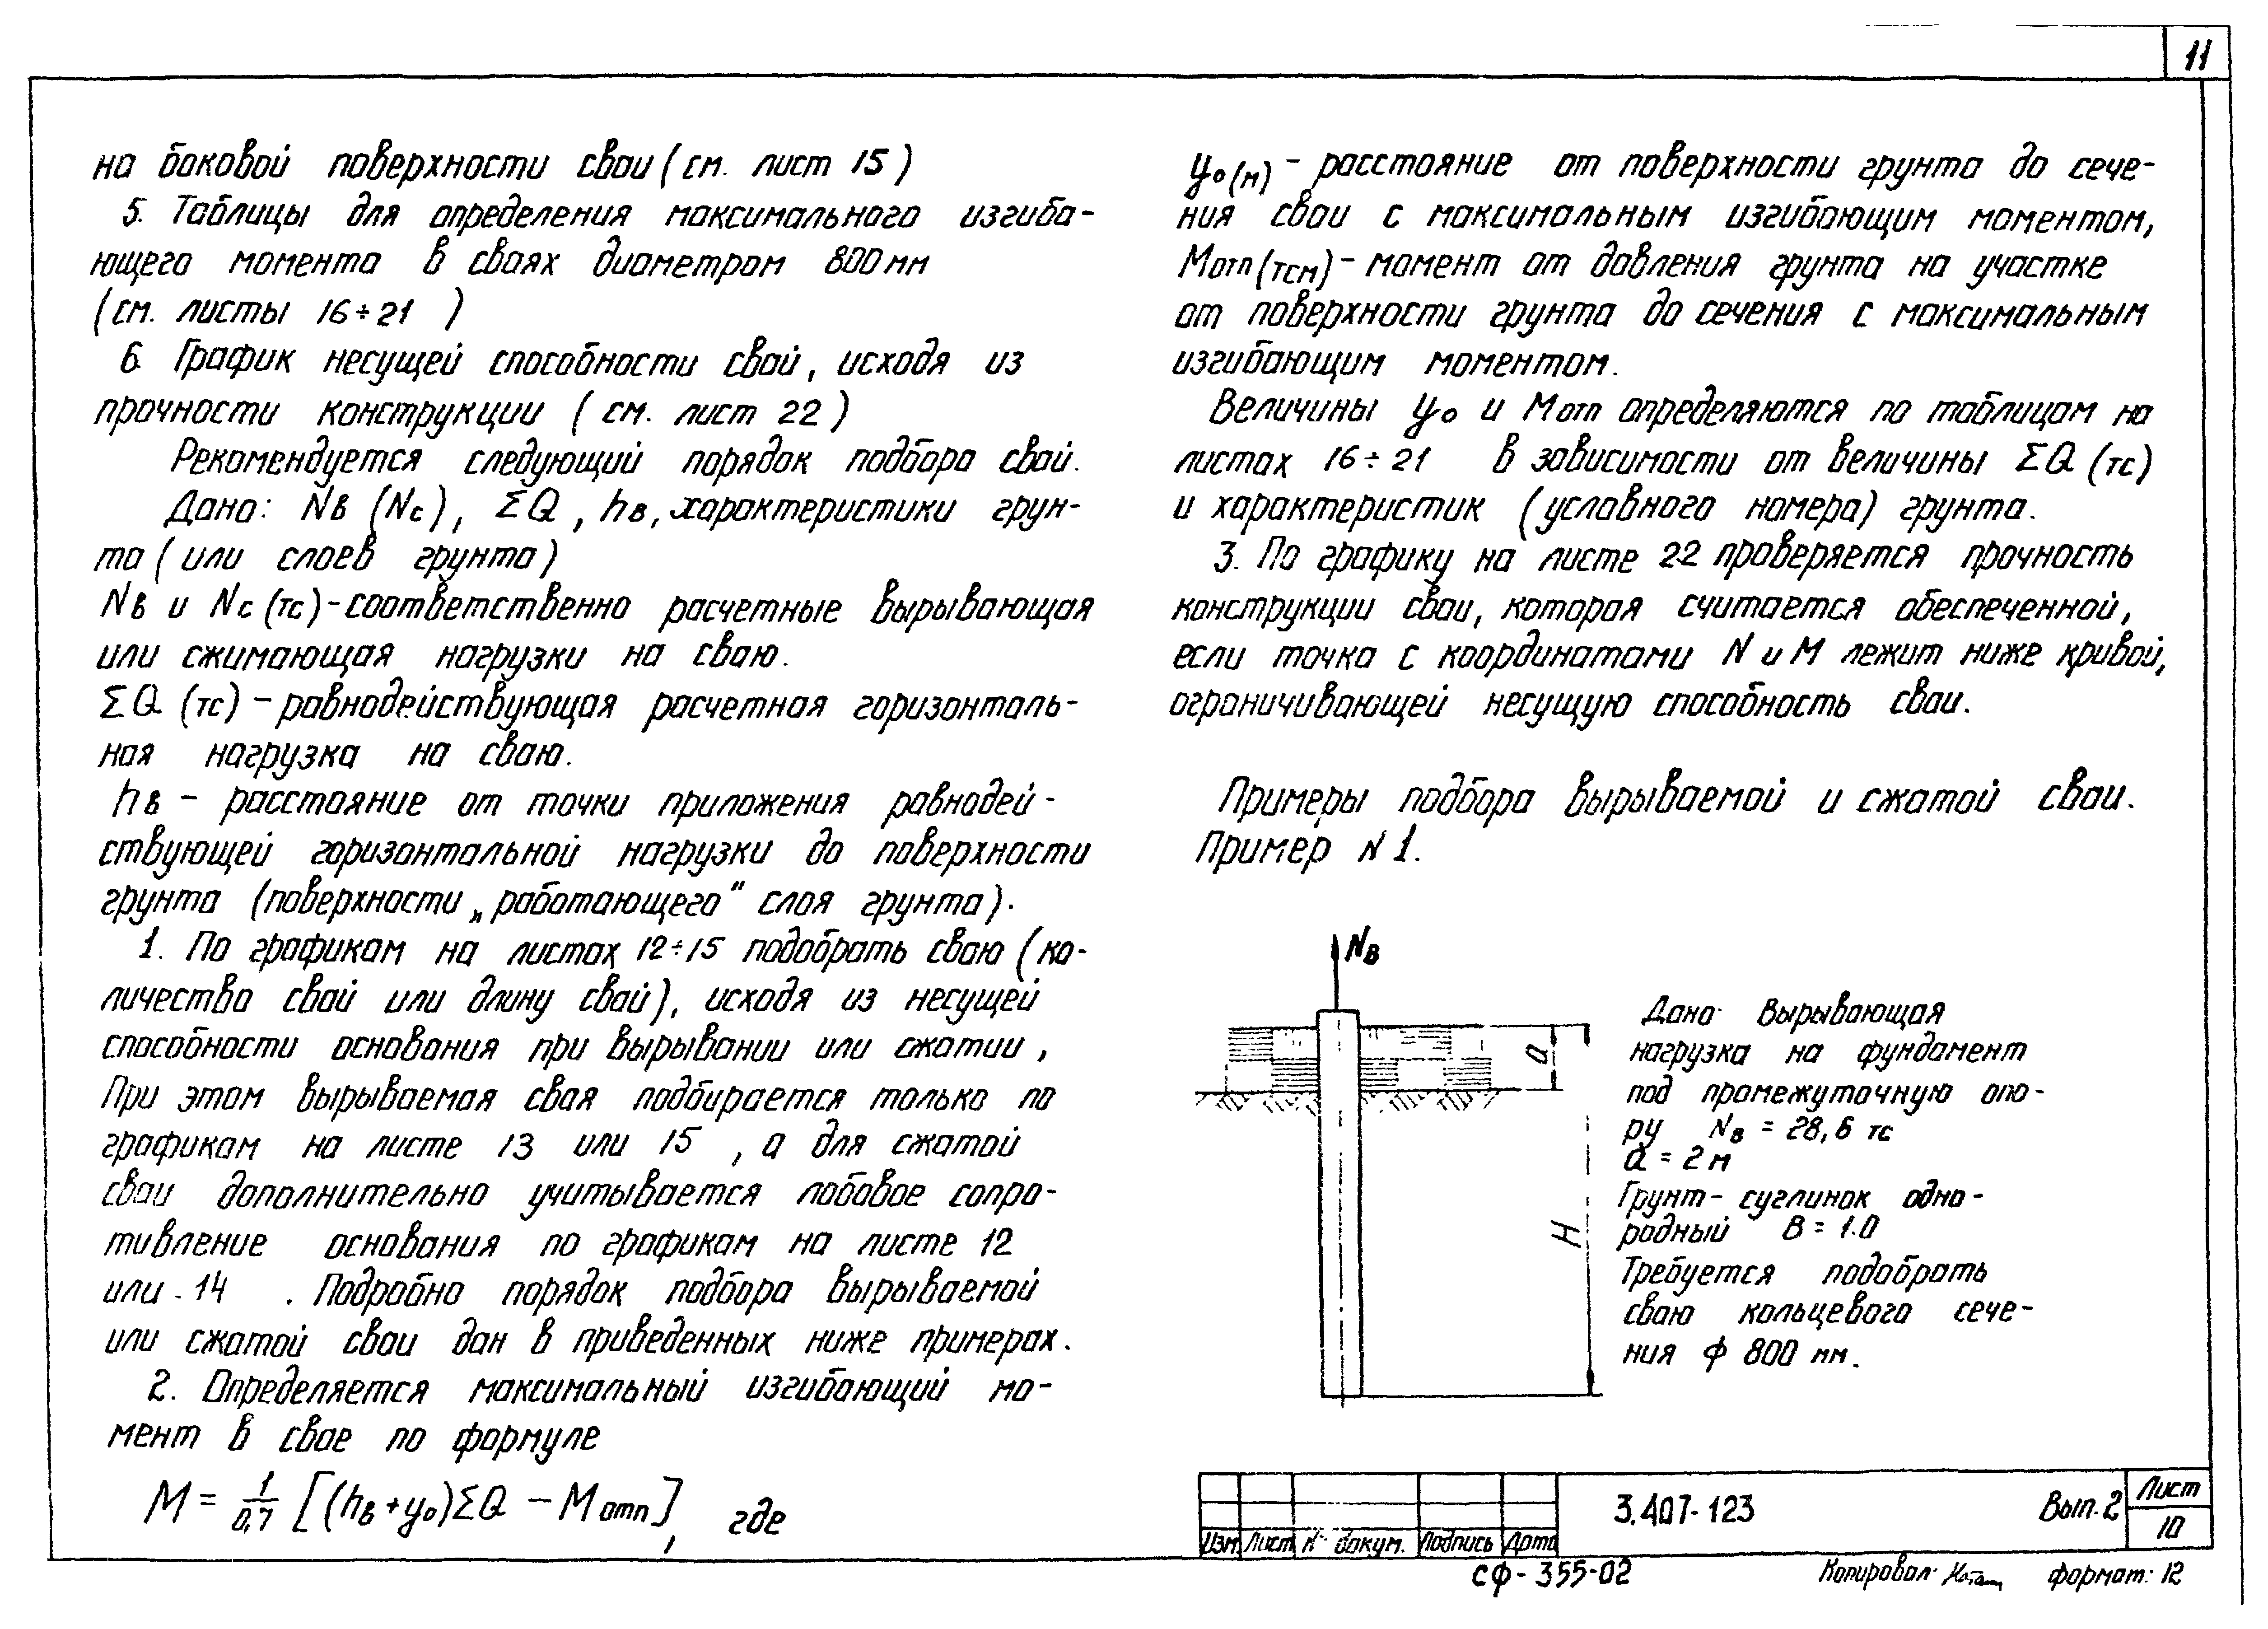 11
на боковой поверхности сваи (см. лист 15)
5. Таблицы для определения максимального изгиба-
ющего момента в сваях диаметром 800 мм
(см. листы 16÷21 )
6. График несущей способности свай, исходя из
прочности конструкции (см. лист 22)
Рекомендуется следующий порядок подбора свай.
Дано: Nв (Nс), ΣQ, hв, характеристики грун-
та (или слоев грунта)
Nв и Nс (тс) - соответственно расчетные вырывающая
или сжимающая нагрузки на сваю.
ΣQ (тс) - равнодействующая расчетная горизонталь-
ная нагрузка на сваю.
hв - расстояние от точки приложения равнодей-
ствующей горизонтальной нагрузки до поверхности
грунта (поверхности „работающего" слоя грунта).
1. По графикам на листах 12÷15 подобрать сваю (ко-
личество свай или длину свай), исходя из несущей
способности основания при вырывании или сжатии,
При этом вырываемая свая подбирается только по
графикам на листе 13 или 15 , а для сжатой
сваи дополнительно учитывается лобовое сопро-
тивление основания по графикам на листе 12
или 14 . Подробно порядок подбора вырываемой
или сжатой сваи дан в приведенных ниже примерах.
2. Определяется максимальный изгибающий мо-
мент в свае по формуле
M = 1/0,7 [(hв + y₀)ΣQ - Mотп], где
y₀ (м) - расстояние от поверхности грунта до сече-
ния сваи с максимальным изгибающим моментом,
Mотп (тсм) - момент от давления грунта на участке
от поверхности грунта до сечения с максимальным
изгибающим моментом.
Величины y₀ и Mотп определяются по таблицам на
листах 16÷21 в зависимости от величины ΣQ (тс)
и характеристик (условного номера) грунта.
3. По графику на листе 22 проверяется прочность
конструкции сваи, которая считается обеспеченной,
если точка с координатами N и M лежит ниже кривой,
ограничивающей несущую способность сваи.
Примеры подбора вырываемой и сжатой сваи.
Пример N 1.
Nв
a
H
Дано: Вырывающая
нагрузка на фундамент
под промежуточную опо-
ру Nв = 28,6 тс
a = 2 м
Грунт - суглинок одно-
родный B = 1.0
Требуется подобрать
сваю кольцевого сече-
ния ф 800 мм.
Изм. Лист N докум. Подпись Дата
3.407-123 Вып. 2
Лист
10
СФ-355-02
Копировал: формат: 12